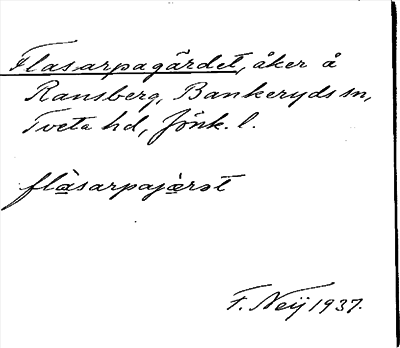 Flasarpagärdet, åker å
Ransberg, Bankeryds sn,
Tveta hd, Jönk. l.
flàsarpajæ̀rət
F. Neij 1937.